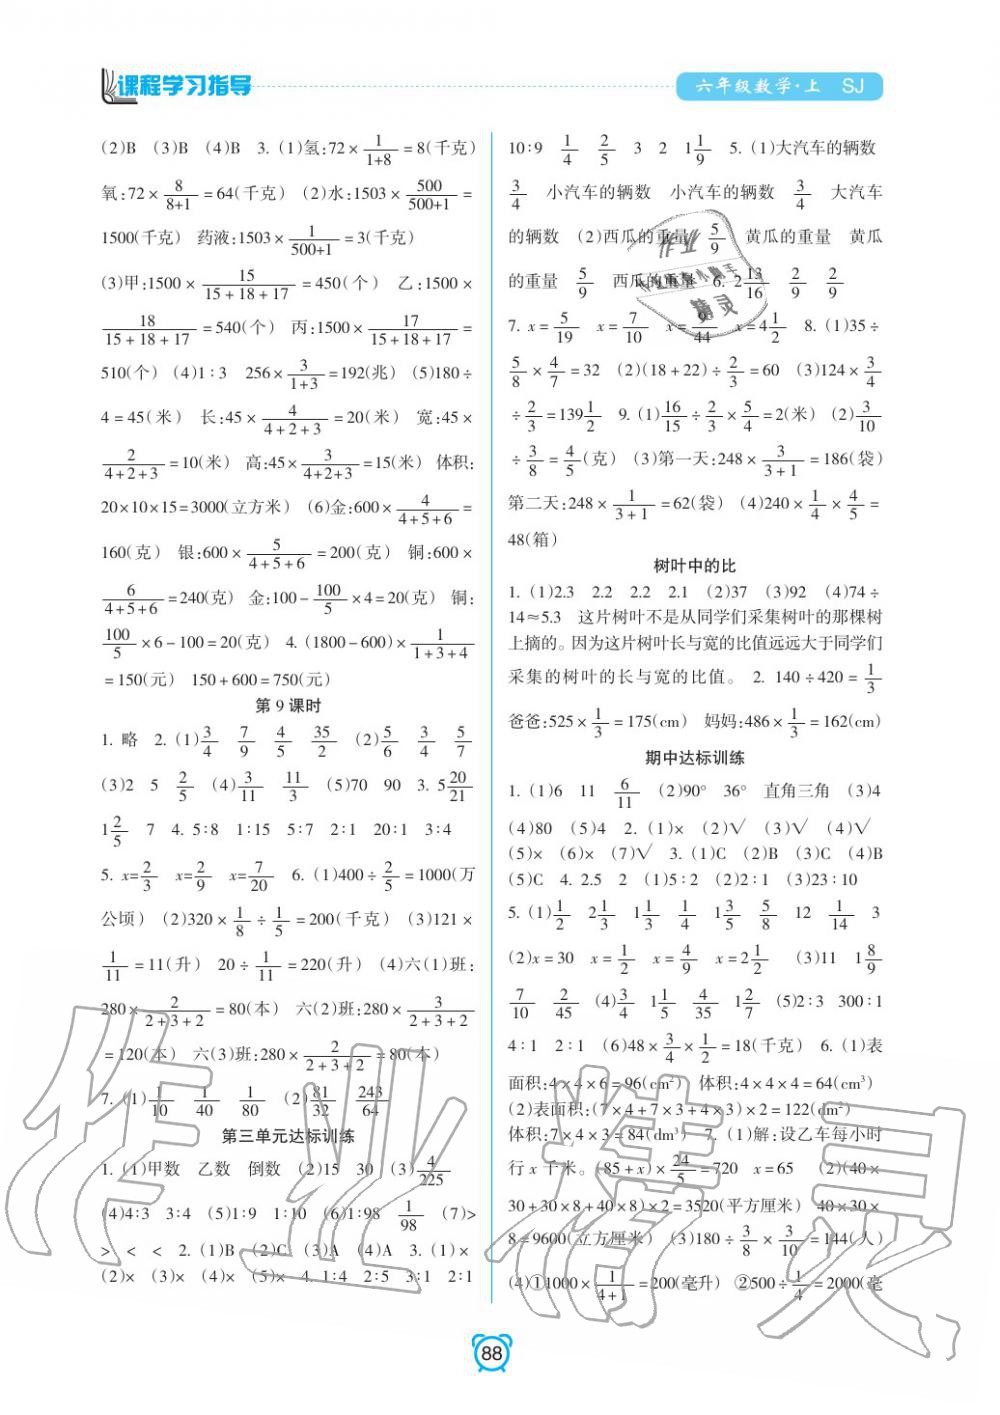 课程学习指导
六年级数学·上 SJ
(2)B (3)B (4)B 3. (1)氢:72×1/(1+8)=8(千克)
氧:72×8/(8+1)=64(千克) (2)水:1503×500/(500+1)=
1500(千克) 药液:1503×1/(500+1)=3(千克)
(3)甲:1500×15/(15+18+17)=450(个) 乙:1500×
18/(15+18+17)=540(个) 丙:1500×17/(15+18+17)=
510(个) (4)1∶3 256×3/(1+3)=192(兆) (5)180÷
4=45(米) 长:45×4/(4+2+3)=20(米) 宽:45×
2/(4+2+3)=10(米) 高:45×3/(4+2+3)=15(米) 体积:
20×10×15=3000(立方米) (6)金:600×4/(4+5+6)=
160(克) 银:600×5/(4+5+6)=200(克) 铜:600×
6/(4+5+6)=240(克) 金:100-100/5×4=20(克) 铜:
100/5×6-100=20(克) 4. (1800-600)×1/(1+3+4)
=150(元) 150+600=750(元)
第9课时
1. 略 2. (1)3/4 7/9 4/5 35/2 (2)5/6 3/4 5/7
(3)2 5 2/5 (4)3/11 11/3 (5)70 90 3. 5 20/21
1 2/5 7 4. 5∶8 1∶15 5∶7 2∶1 20∶1 3∶4
5. x=2/3 x=2/9 x=7/20 6. (1)400÷2/5=1000(万
公顷) (2)320×1/8÷1/5=200(千克) (3)121×
1/11=11(升) 20÷1/11=220(升) (4)六(1)班:
280×2/(2+3+2)=80(本) 六(2)班:280×3/(2+3+2)
=120(本) 六(3)班:280×2/(2+3+2)=80(本)
7. (1)1/10 1/40 1/80 (2)81/32 243/64
第三单元达标训练
1. (1)甲数 乙数 倒数 (2)15 30 (3)4/225
(4)4∶3 3∶4 (5)1∶9 1∶10 (6)1∶98 1/98 (7)>
> < < 2. (1)B (2)C (3)A (4)A 3. (1)×
(2)× (3)× (4)× (5)× 4. 1∶4 2∶5 3∶1 2∶1
10∶9 1/4 2/5 3 2 1 1/9 5. (1)大汽车的辆数
3/4 小汽车的辆数 小汽车的辆数 3/4 大汽车
的辆数 (2)西瓜的重量 5/9 黄瓜的重量 黄瓜
的重量 5/9 西瓜的重量 6. 2 13/16 2/9 2/9
7. x=5/19 x=7/10 x=9/44 x=4 1/2 8. (1)35÷
5/8×4/7=32 (2)(18+22)÷2/3=60 (3)124×3/4
÷2/3=139 1/2 9. (1)16/15÷2/3×5/4=2(米) (2)3/10
÷3/8=4/5(克) (3)第一天:248×3/(3+1)=186(袋)
第二天:248×1/(3+1)=62(袋) (4)240×1/4×4/5=
48(箱)
树叶中的比
1. (1)2.3 2.2 2.2 2.1 (2)37 (3)92 (4)74÷
14≈5.3 这片树叶不是从同学们采集树叶的那棵树
上摘的。因为这片树叶长与宽的比值远远大于同学们
采集的树叶的长与宽的比值。 2. 140÷420=1/3
爸爸:525×1/3=175(cm) 妈妈:486×1/3=162(cm)
期中达标训练
1. (1)6 11 6/11 (2)90° 36° 直角三角 (3)4
(4)80 (5)4 2. (1)× (2)√ (3)√ (4)√
(5)× (6)× (7)√ 3. (1)C (2)B (3)C (4)B
(5)C 4. 2.5 2 (1)5∶2 (2)2∶1 (3)23∶10
5. (1)1/2 2 1/3 1 1/3 1/4 1 3/5 5/8 12 1/14 3
(2)x=30 x=1/2 x=4/9 x=2 1/2 (3)11 1 8/9
7/10 2/45 (4)3/4 1 1/5 4/35 1 2/7 (5)2∶3 300∶1
4∶1 2∶1 (6)48×3/4×1/2=18(千克) 6. (1)表
面积:4×4×6=96(cm²) 体积:4×4×4=64(cm³)
(2)表面积:(7×4+7×3+4×3)×2=122(dm²)
体积:7×4×3=84(dm³) 7. (1)解:设乙车每小时
行x千米。(85+x)×24/5=720 x=65 (2)(40×
30+30×8+40×8)×2=3520(平方厘米) 40×30×
8=9600(立方厘米) (3)180÷3/8×3/10=144(人)
(4)①1000×1/(4+1)=200(毫升) ②500÷1/4=2000(毫
88
作业精灵